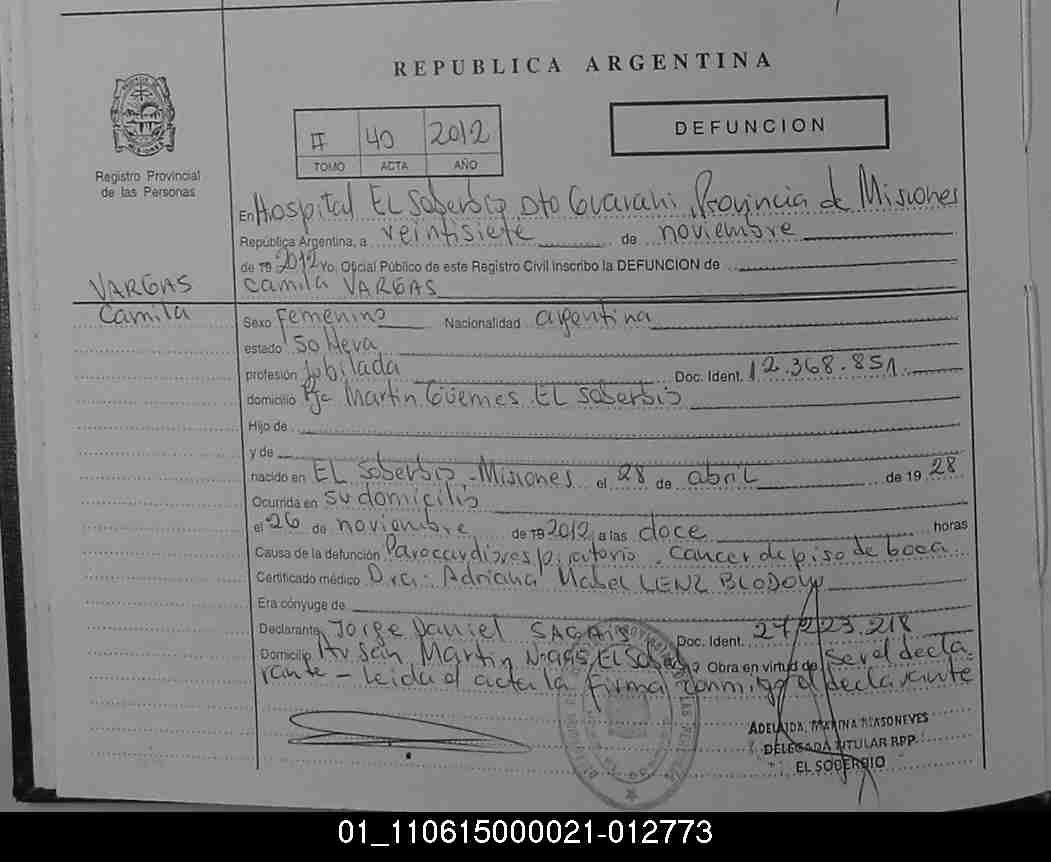 REPUBLICA ARGENTINA
II 40 2012
TOMO ACTA AÑO
DEFUNCION
Registro Provincial
de las Personas
En Hospital EL Soberbio Dto Guarahi, Provincia de Misiones
República Argentina, a veintisiete de noviembre
de 19 2012 Yo, Oficial Público de este Registro Civil inscribo la DEFUNCION de
VARGAS
Camila
Camila VARGAS
Sexo Femenino Nacionalidad argentina
estado Soltera
profesión Jubilada Doc. Ident. 12.368.851
domicilio Pje Martin Güemes EL Soberbio
Hijo de
y de
nacido en EL Soberbio - Misiones el 28 de abril de 19 28
Ocurrida en su domicilio
el 26 de noviembre de 19 2012 a las doce horas
Causa de la defunción Parocardiorespiratorio - cancer de piso de boca
Certificado médico Dra: Adriana Mabel LENZ
Era cónyuge de
Declarante Jorge Daniel Doc. Ident. 27/223.218
Domicilio Av San Martin EL Soberbio Obra en virtud de ser el decla-
rante - Leida el acta la firma conmigo el declarante
ADELAIDA MARINA MASONEVES
DELEGADA TITULAR RPP.
EL SOBERBIO
01_110615000021-012773